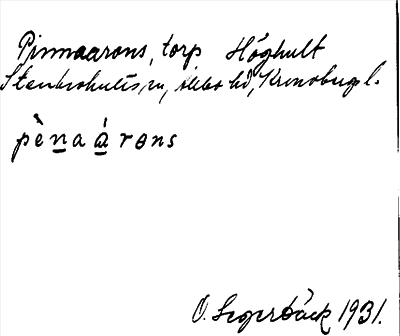 Pinnaarons, torp Höghult
Stenbrohults sn, Allbo hd, Kronobergs l.
pènaárons
O. Segerbäck 1931.